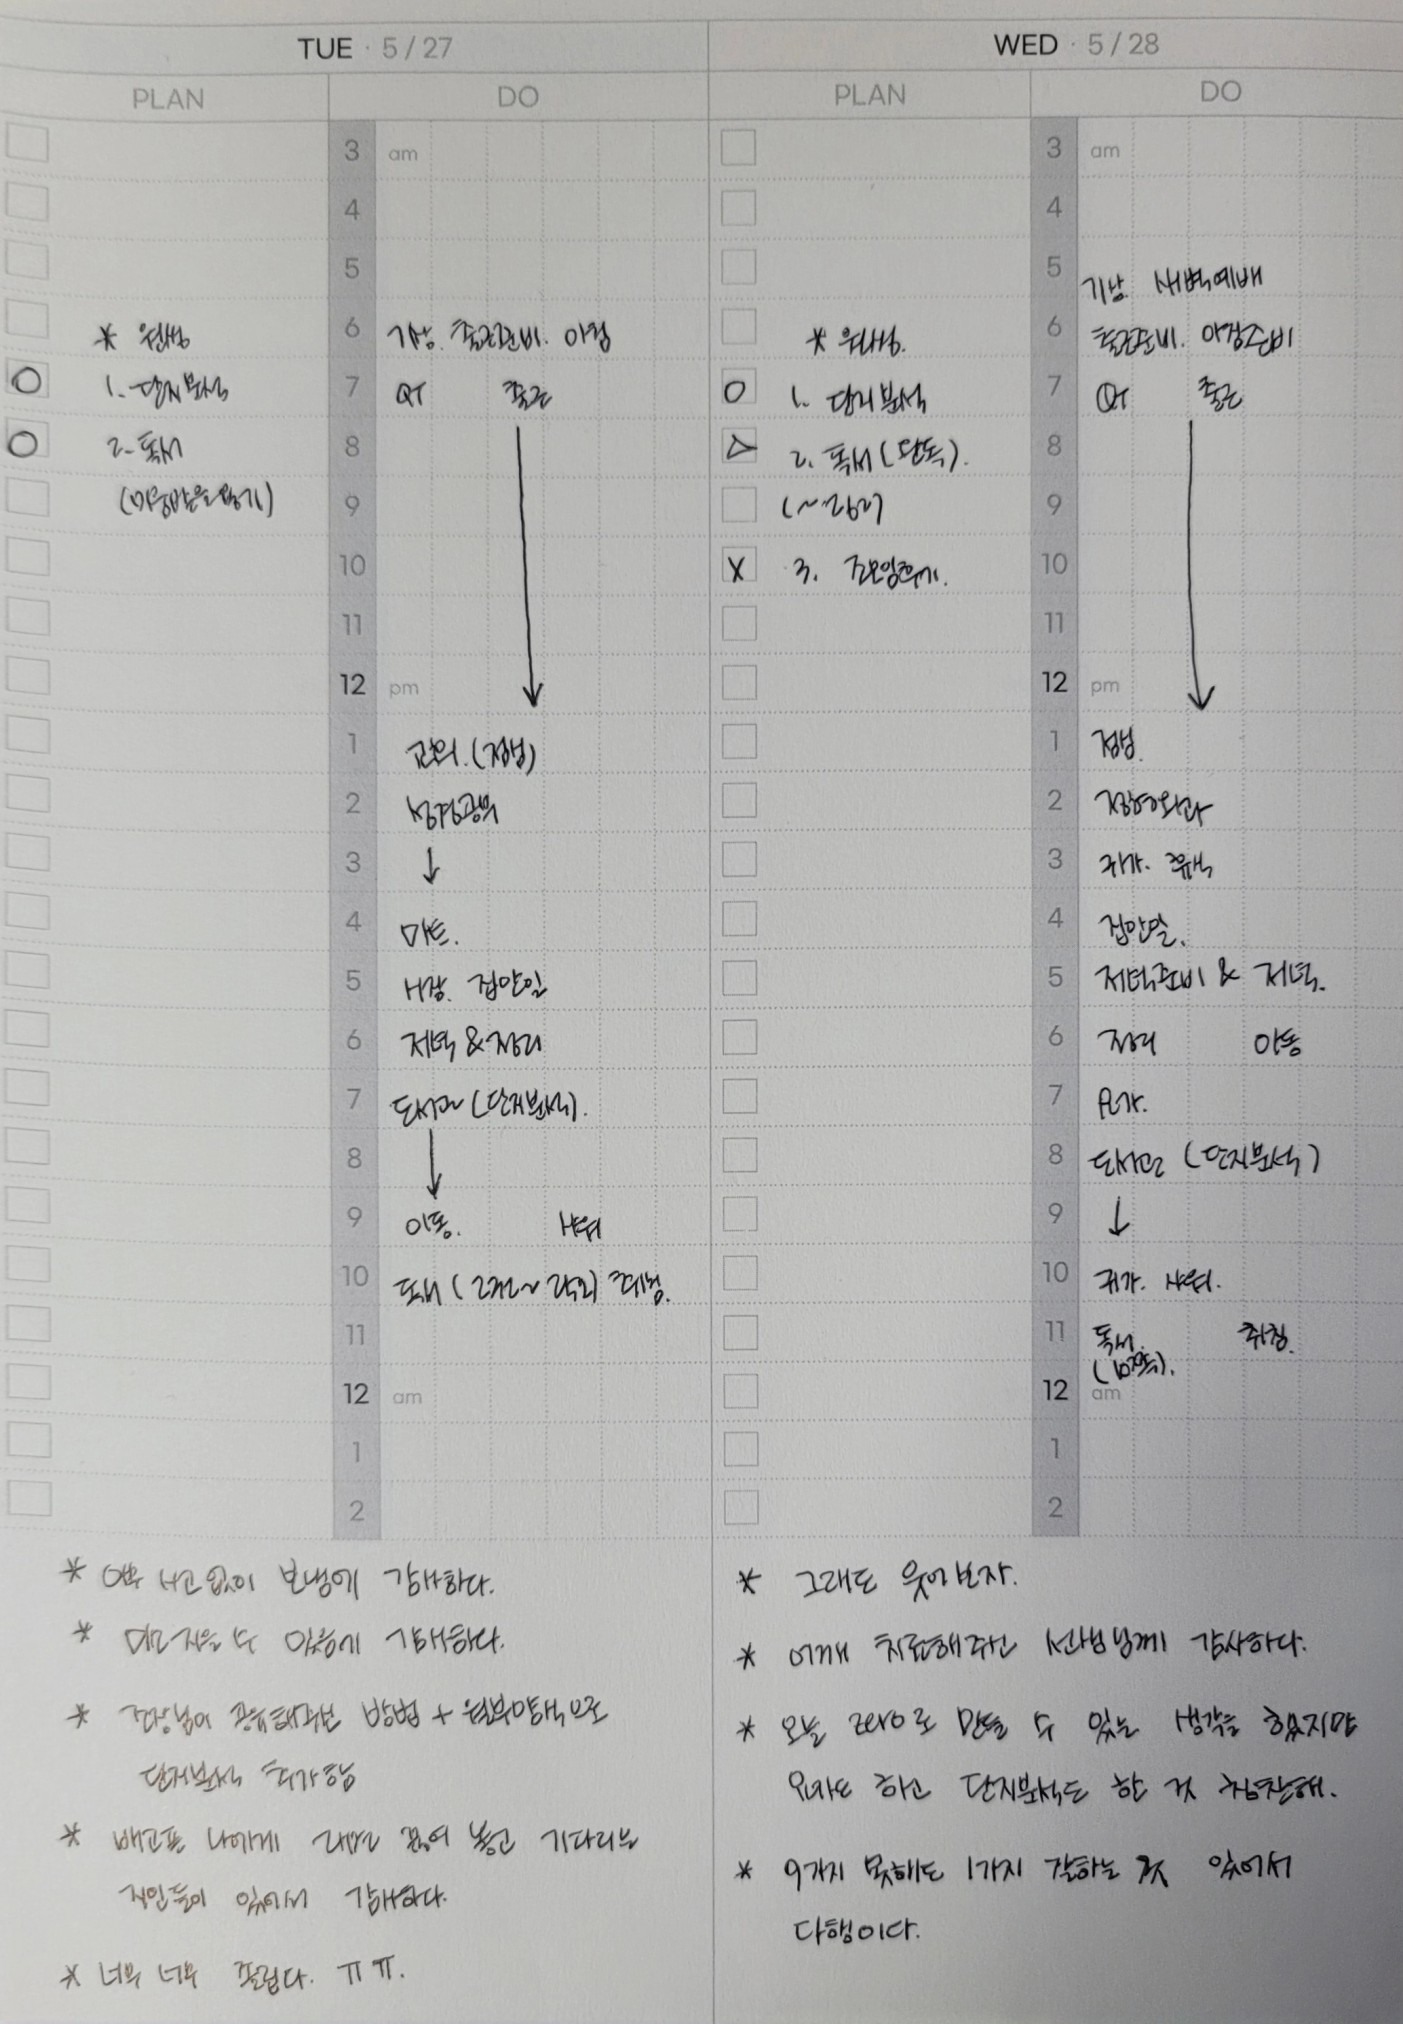 TUE · 5/27
PLAN
DO
3 am
4
5
6 기상. 출근준비. 아침
* 원씽
7 QT 출근
O 1. 단지분석
8
O 2. 독서
9
10
11
12 pm
1 (점심)
2
3 ↓
4 마트.
5 집안일
6 저녁 & 정리
7 도서관 (단지분석).
8 ↓
9 이동. 샤워
10 독서
11
12 am
1
2
* 사고 없이 보냄에 감사하다.
* 지을 수 있음에 감사하다.
* 공유해주신 방법 +
단지분석 추가함
* 배고픈 나에게 라면 끓여 놓고 기다리는
직인들이 있어서 감사하다.
* 너무 너무 졸립다. ㅠㅠ.
WED · 5/28
PLAN
DO
3 am
4
5 기상 새벽예배
6 출근준비. 아침준비
* 원씽.
7 QT 출근
O 1. 단지분석
8
△ 2. 독서 (완독).
9
10
X 3. 조모임후기.
11
12 pm
1 점심.
2 정형외과
3 귀가. 휴식
4 집안일.
5 저녁준비 & 저녁.
6 정리 이동
7 요가.
8 도서관 (단지분석)
9 ↓
10 귀가. 샤워.
11 독서. 취침.
12 am
1
2
* 그래도 웃어보자.
* 어깨 치료해주신 선생님께 감사하다.
* 오늘 zero로 만들 수 있는 생각을 했지만
요가도 하고 단지분석도 한 것 칭찬해.
* 9가지 못해도 1가지 잘하는 것 있어서
다행이다.